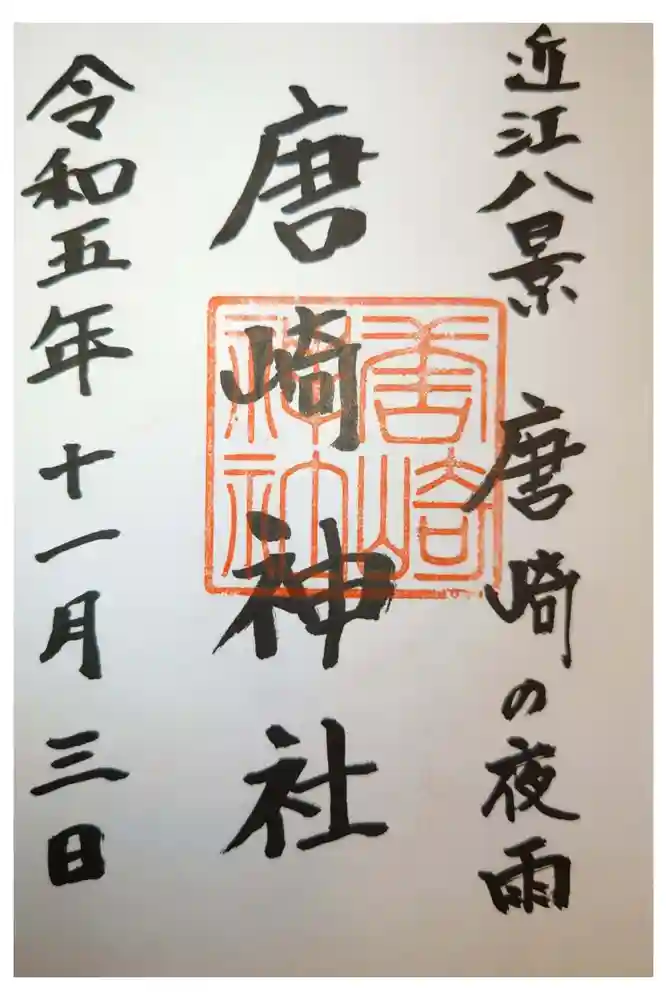 近江八景 唐崎の夜雨
唐崎神社
唐崎神社
令和五年十一月三日